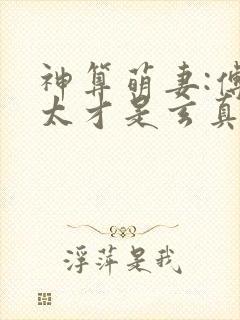 神算萌妻:傅
太才是玄真
浮萍是我